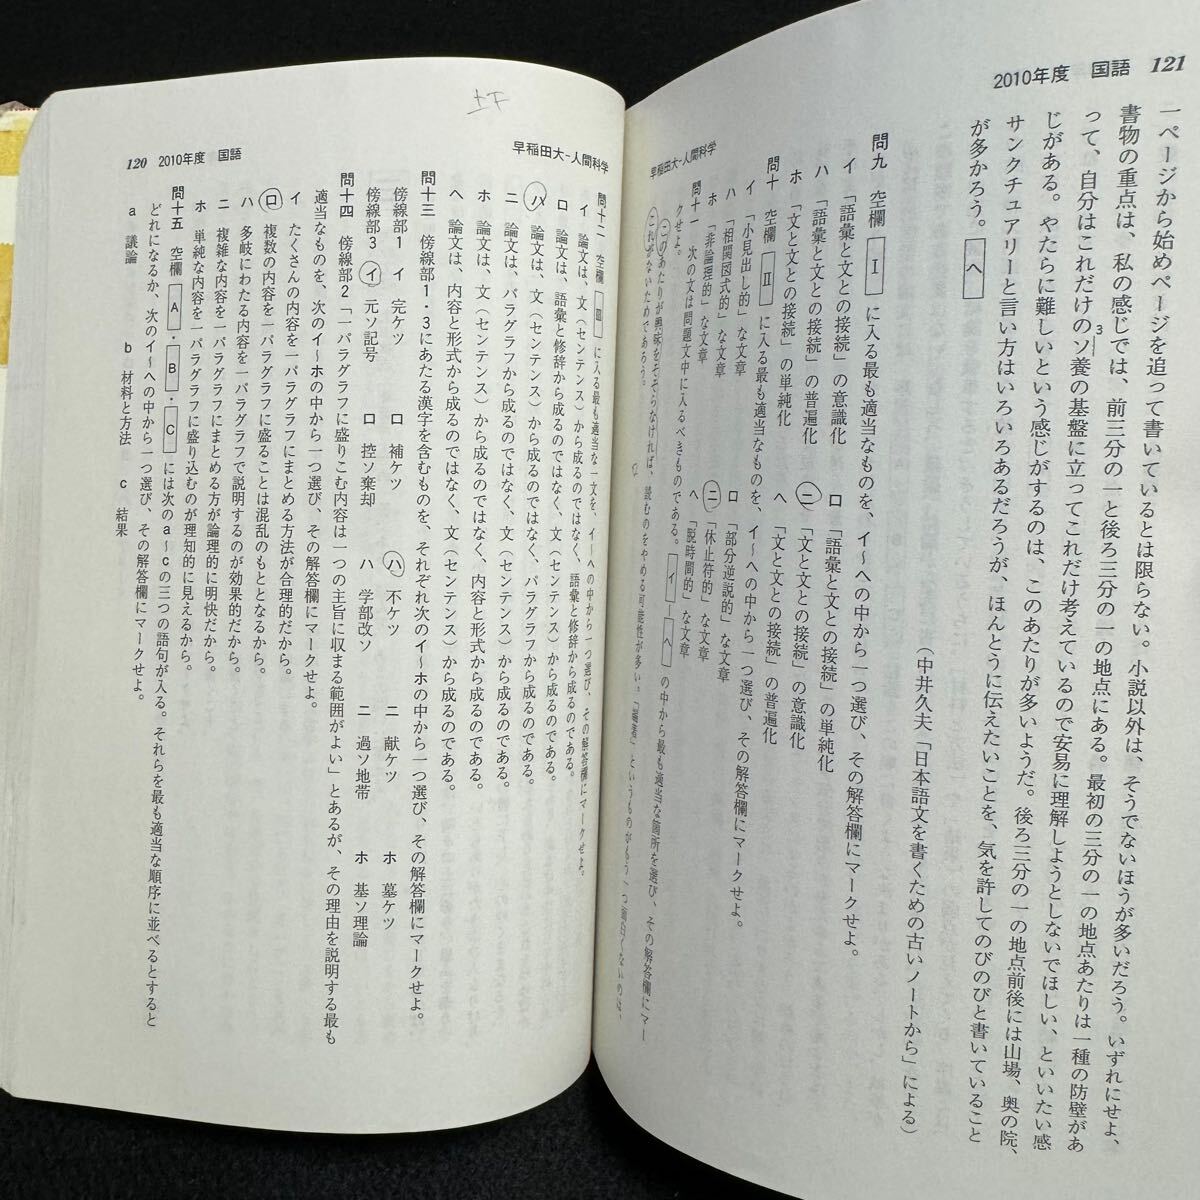 2010年度 国語 121
一ページから始めページを追って書いているとは限らない。小説以外は、そうでないほうが多いだろう。いずれにせよ、
書物の重点は、私の感じでは、前三分の一と後ろ三分の一の地点にある。最初の三分の一の地点あたりは一種の防壁があ
って、自分はこれだけのソ養の基盤に立ってこれだけ考えているので安易に理解しようとしないでほしい、といいたい感
3
じがある。やたらに難しいという感じがするのは、このあたりが多いようだ。後ろ三分の一の地点前後には山場、奥の院、
サンクチュアリーと言い方はいろいろあるだろうが、ほんとうに伝えたいことを、気を許してのびのびと書いていること
が多かろう。 ヘ
(中井久夫「日本語文を書くための古いノートから」による)
問九 空欄 Ⅰ に入る最も適当なものを、イ〜ヘの中から一つ選び、その解答欄にマークせよ。
イ 「語彙と文との接続」の意識化 ロ 「語彙と文との接続」の単純化
ハ 「語彙と文との接続」の普遍化 ニ 「文と文との接続」の意識化
ホ 「文と文との接続」の単純化 ヘ 「文と文との接続」の普遍化
問十 空欄 Ⅱ に入る最も適当なものを、イ〜ヘの中から一つ選び、その解答欄にマークせよ。
イ 「小見出し的」な文章 ロ 「部分逆説的」な文章
ハ 「相関図式的」な文章 ニ 「休止符的」な文章
ホ 「非論理的」な文章 ヘ 「脱時間的」な文章
問十一 次の文は問題文中に入るべきものである。 イ ー ヘ の中から最も適当な箇所を選び、その解答欄にマー
クせよ。
このあたりが興味をそそらなければ、読むのをやめる可能性が多い。「論著」というものがもう一つ面白くないのは、
これがないためであろう。
早稲田大-人間科学
早稲田大-人間科学
120 2010年度 国語
問十二 空欄 Ⅲ に入る最も適当な一文を、イ〜ヘの中から一つ選び、その解答欄にマークせよ。
イ 論文は、文(センテンス)から成るのではなく、語彙と修辞から成るのである。
ロ 論文は、語彙と修辞から成るのではなく、文(センテンス)から成るのである。
ハ 論文は、文(センテンス)から成るのではなく、パラグラフから成るのである。
ニ 論文は、パラグラフから成るのではなく、文(センテンス)から成るのである。
ホ 論文は、文(センテンス)から成るのではなく、内容と形式から成るのである。
ヘ 論文は、内容と形式から成るのではなく、文(センテンス)から成るのである。
問十三 傍線部1・3にあたる漢字を含むものを、それぞれ次のイ〜ホの中から一つ選び、その解答欄にマークせよ。
傍線部1 イ 完ケツ ロ 補ケツ ハ 不ケツ ニ 献ケツ ホ 墓ケツ
傍線部3 イ 元ソ記号 ロ 控ソ棄却 ハ 学部改ソ ニ 過ソ地帯 ホ 基ソ理論
問十四 傍線部2「一パラグラフに盛りこむ内容は一つの主旨に収まる範囲がよい」とあるが、その理由を説明する最も
適当なものを、次のイ〜ホの中から一つ選び、その解答欄にマークせよ。
イ たくさんの内容を一パラグラフにまとめる方法が合理的だから。
ロ 複数の内容を一パラグラフに盛ることは混乱のもととなるから。
ハ 多岐にわたる内容を一パラグラフで説明するのが効果的だから。
ニ 複雑な内容を一パラグラフにまとめる方が論理的に明快だから。
ホ 単純な内容を一パラグラフに盛り込むのが理知的に見えるから。
問十五 空欄 A ・ B ・ C には次のa〜cの三つの語句が入る。それらを最も適当な順序に並べるとすると
どれになるか、次のイ〜ヘの中から一つ選び、その解答欄にマークせよ。
a 議論 b 材料と方法 c 結果